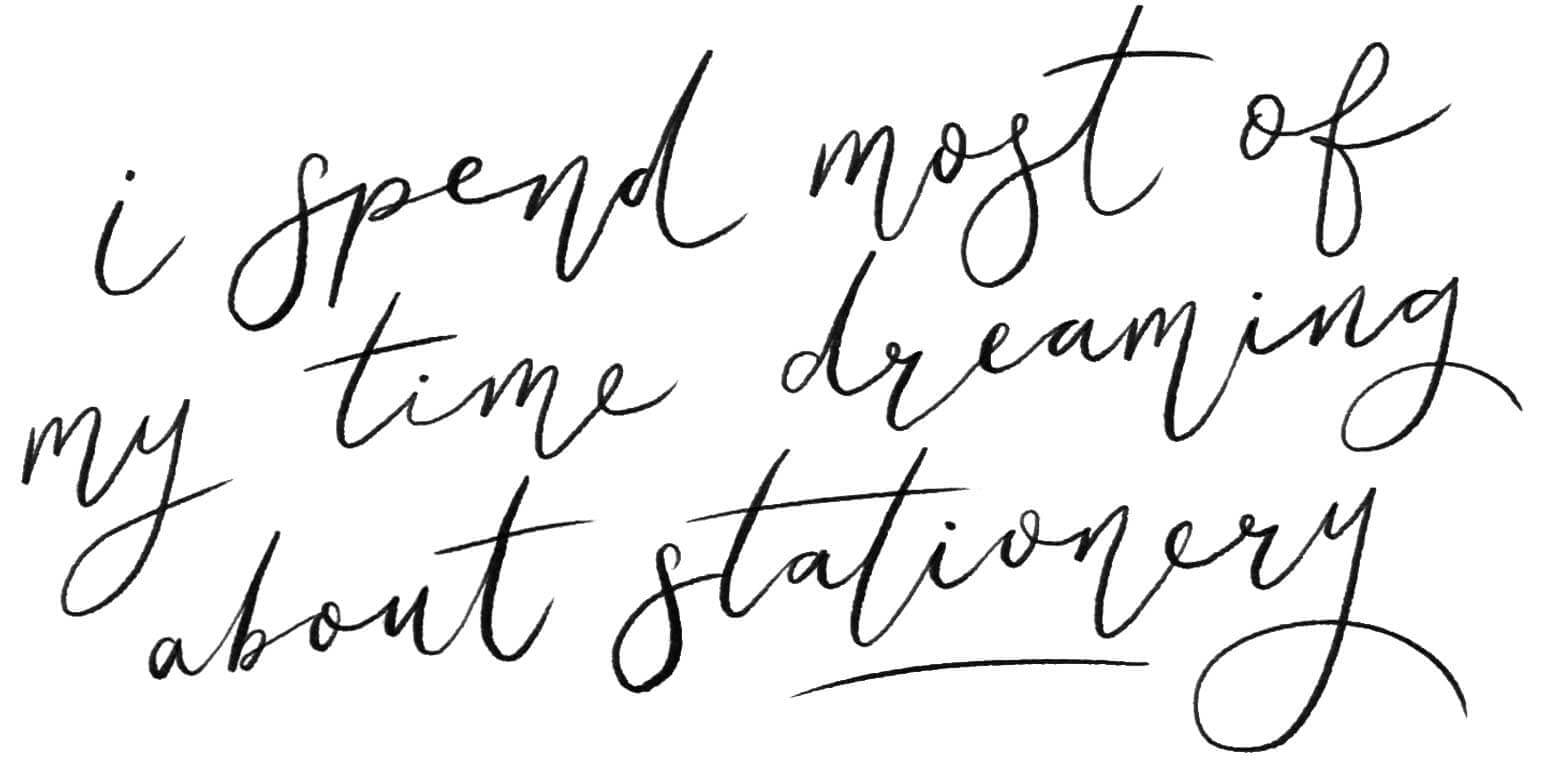 i spend most of
my time dreaming
about stationery